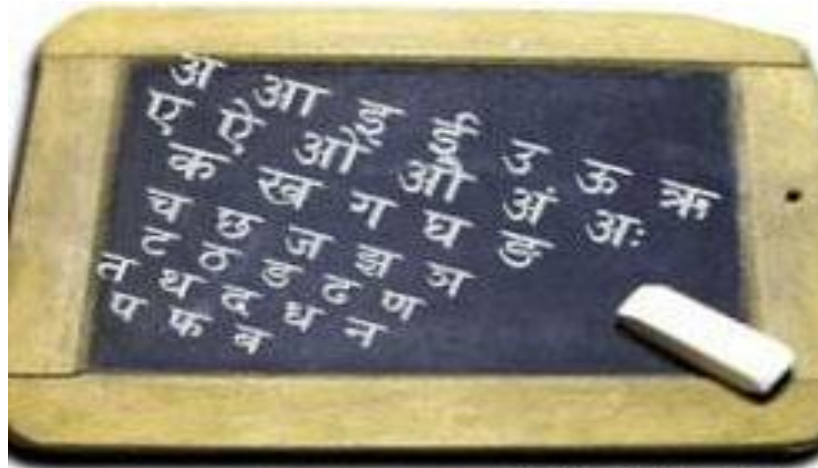 अ आ इ ई उ ऊ ऋ
ए ऐ ओ औ अं अः
क ख ग घ ङ
च छ ज झ ञ
ट ठ ड ढ ण
त थ द ध न
प फ ब